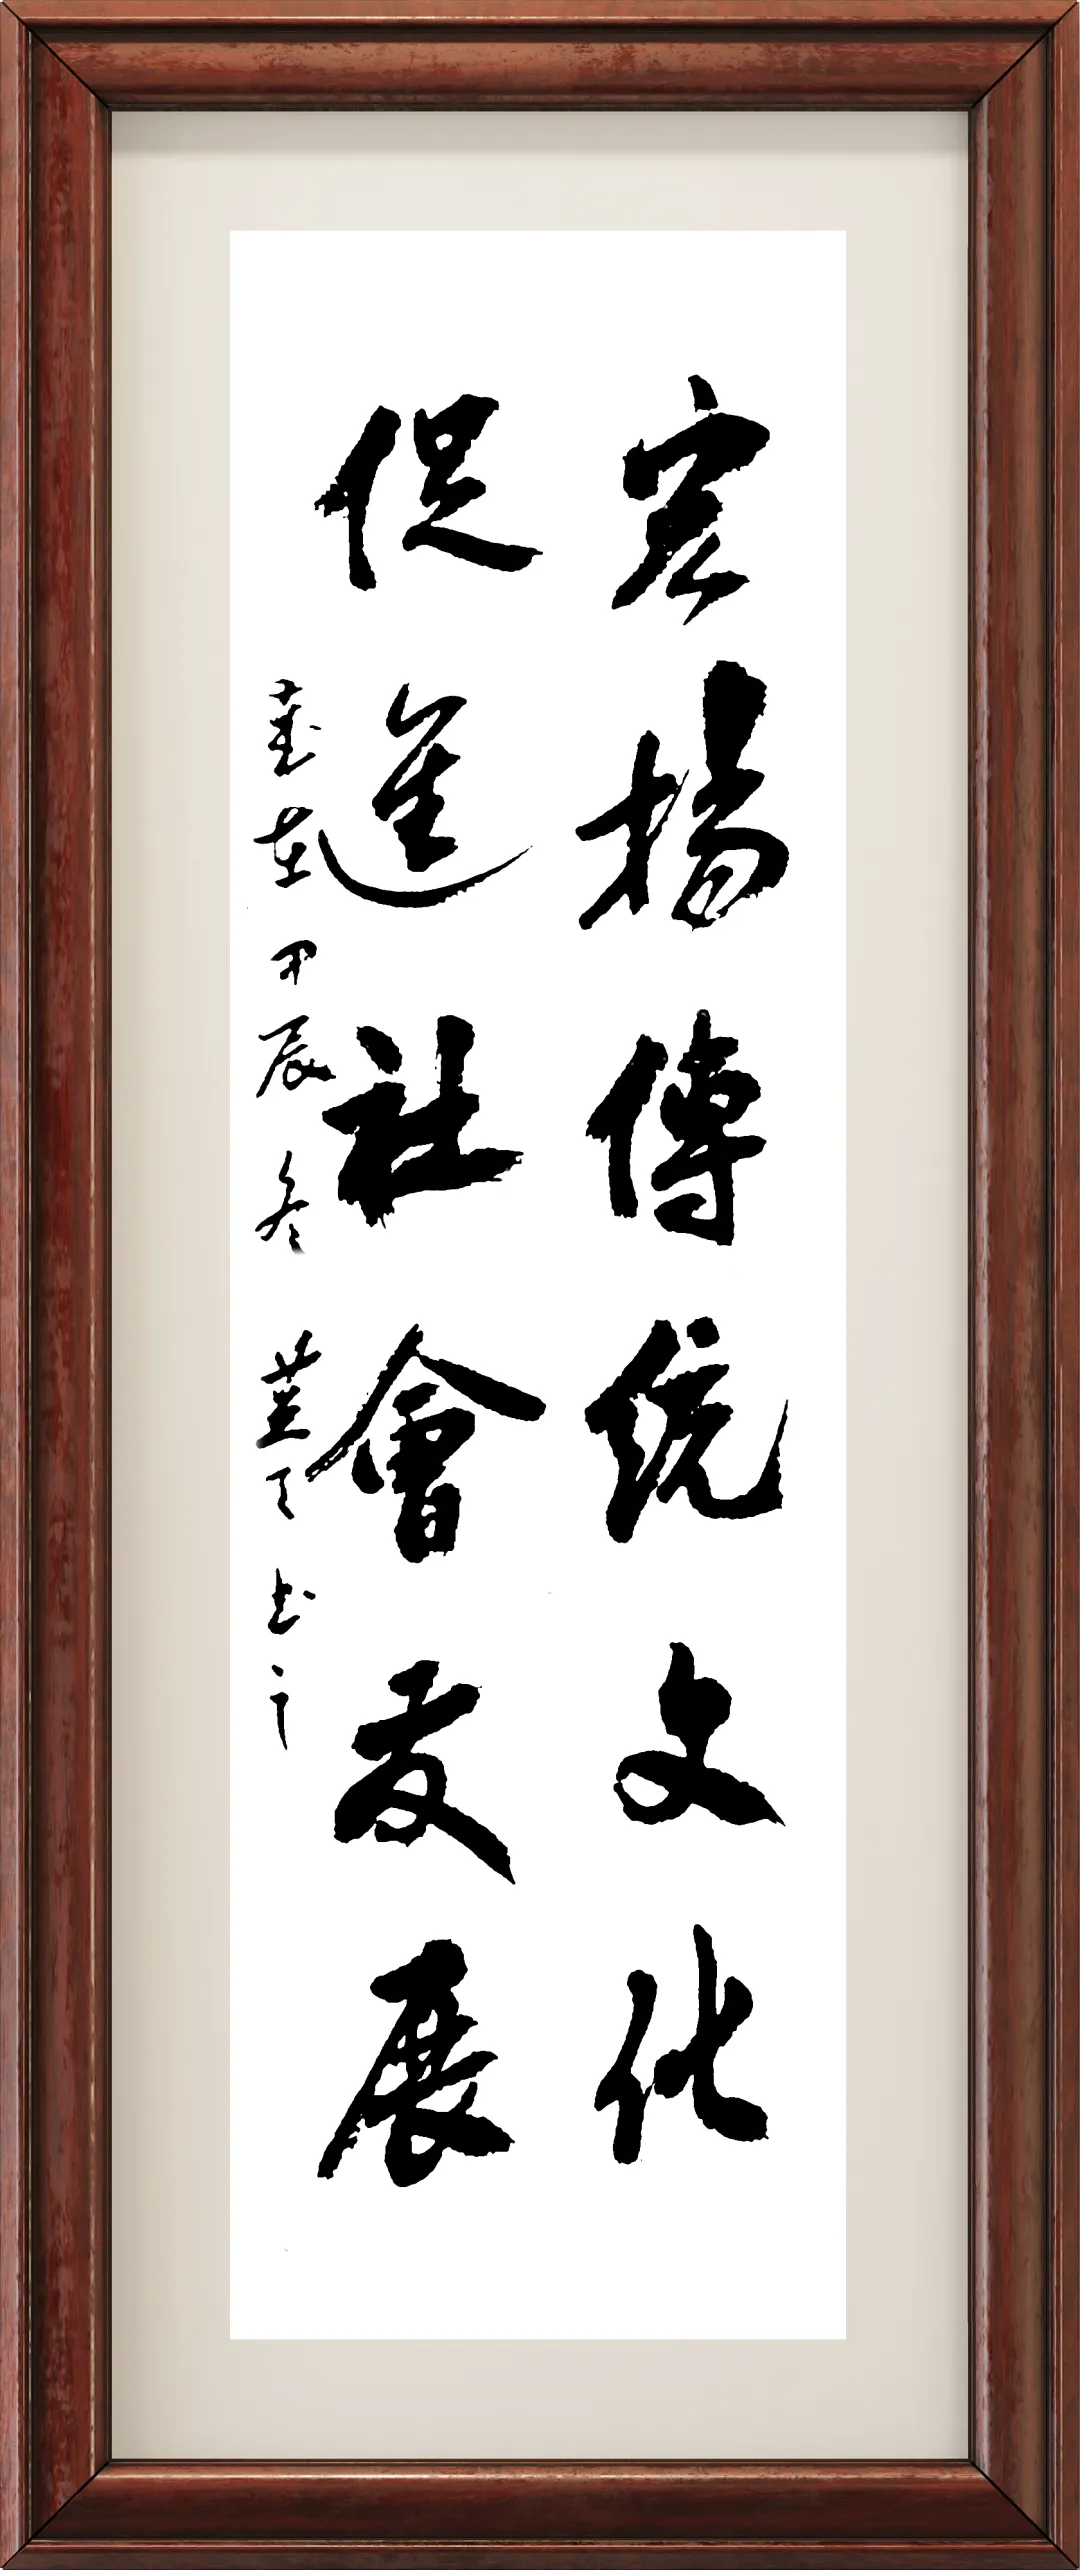 宏揚傳統文化
促進社會發展
歲在甲辰冬